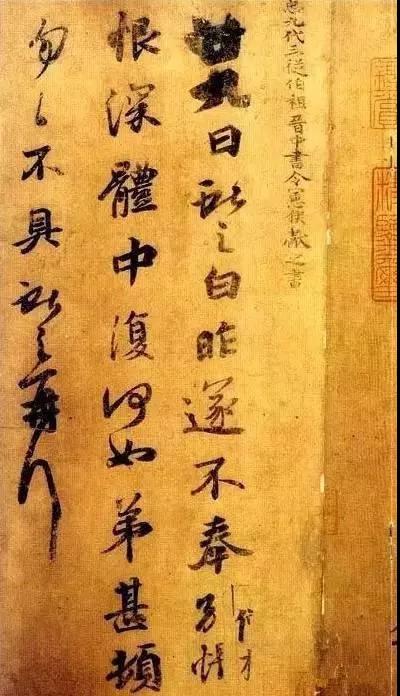 九代三從伯祖晉中書令憲侯獻之書
廿九日獻之白昨遂不奉別悵
恨深體中復何如弟甚頓
匆匆不具獻之再拜